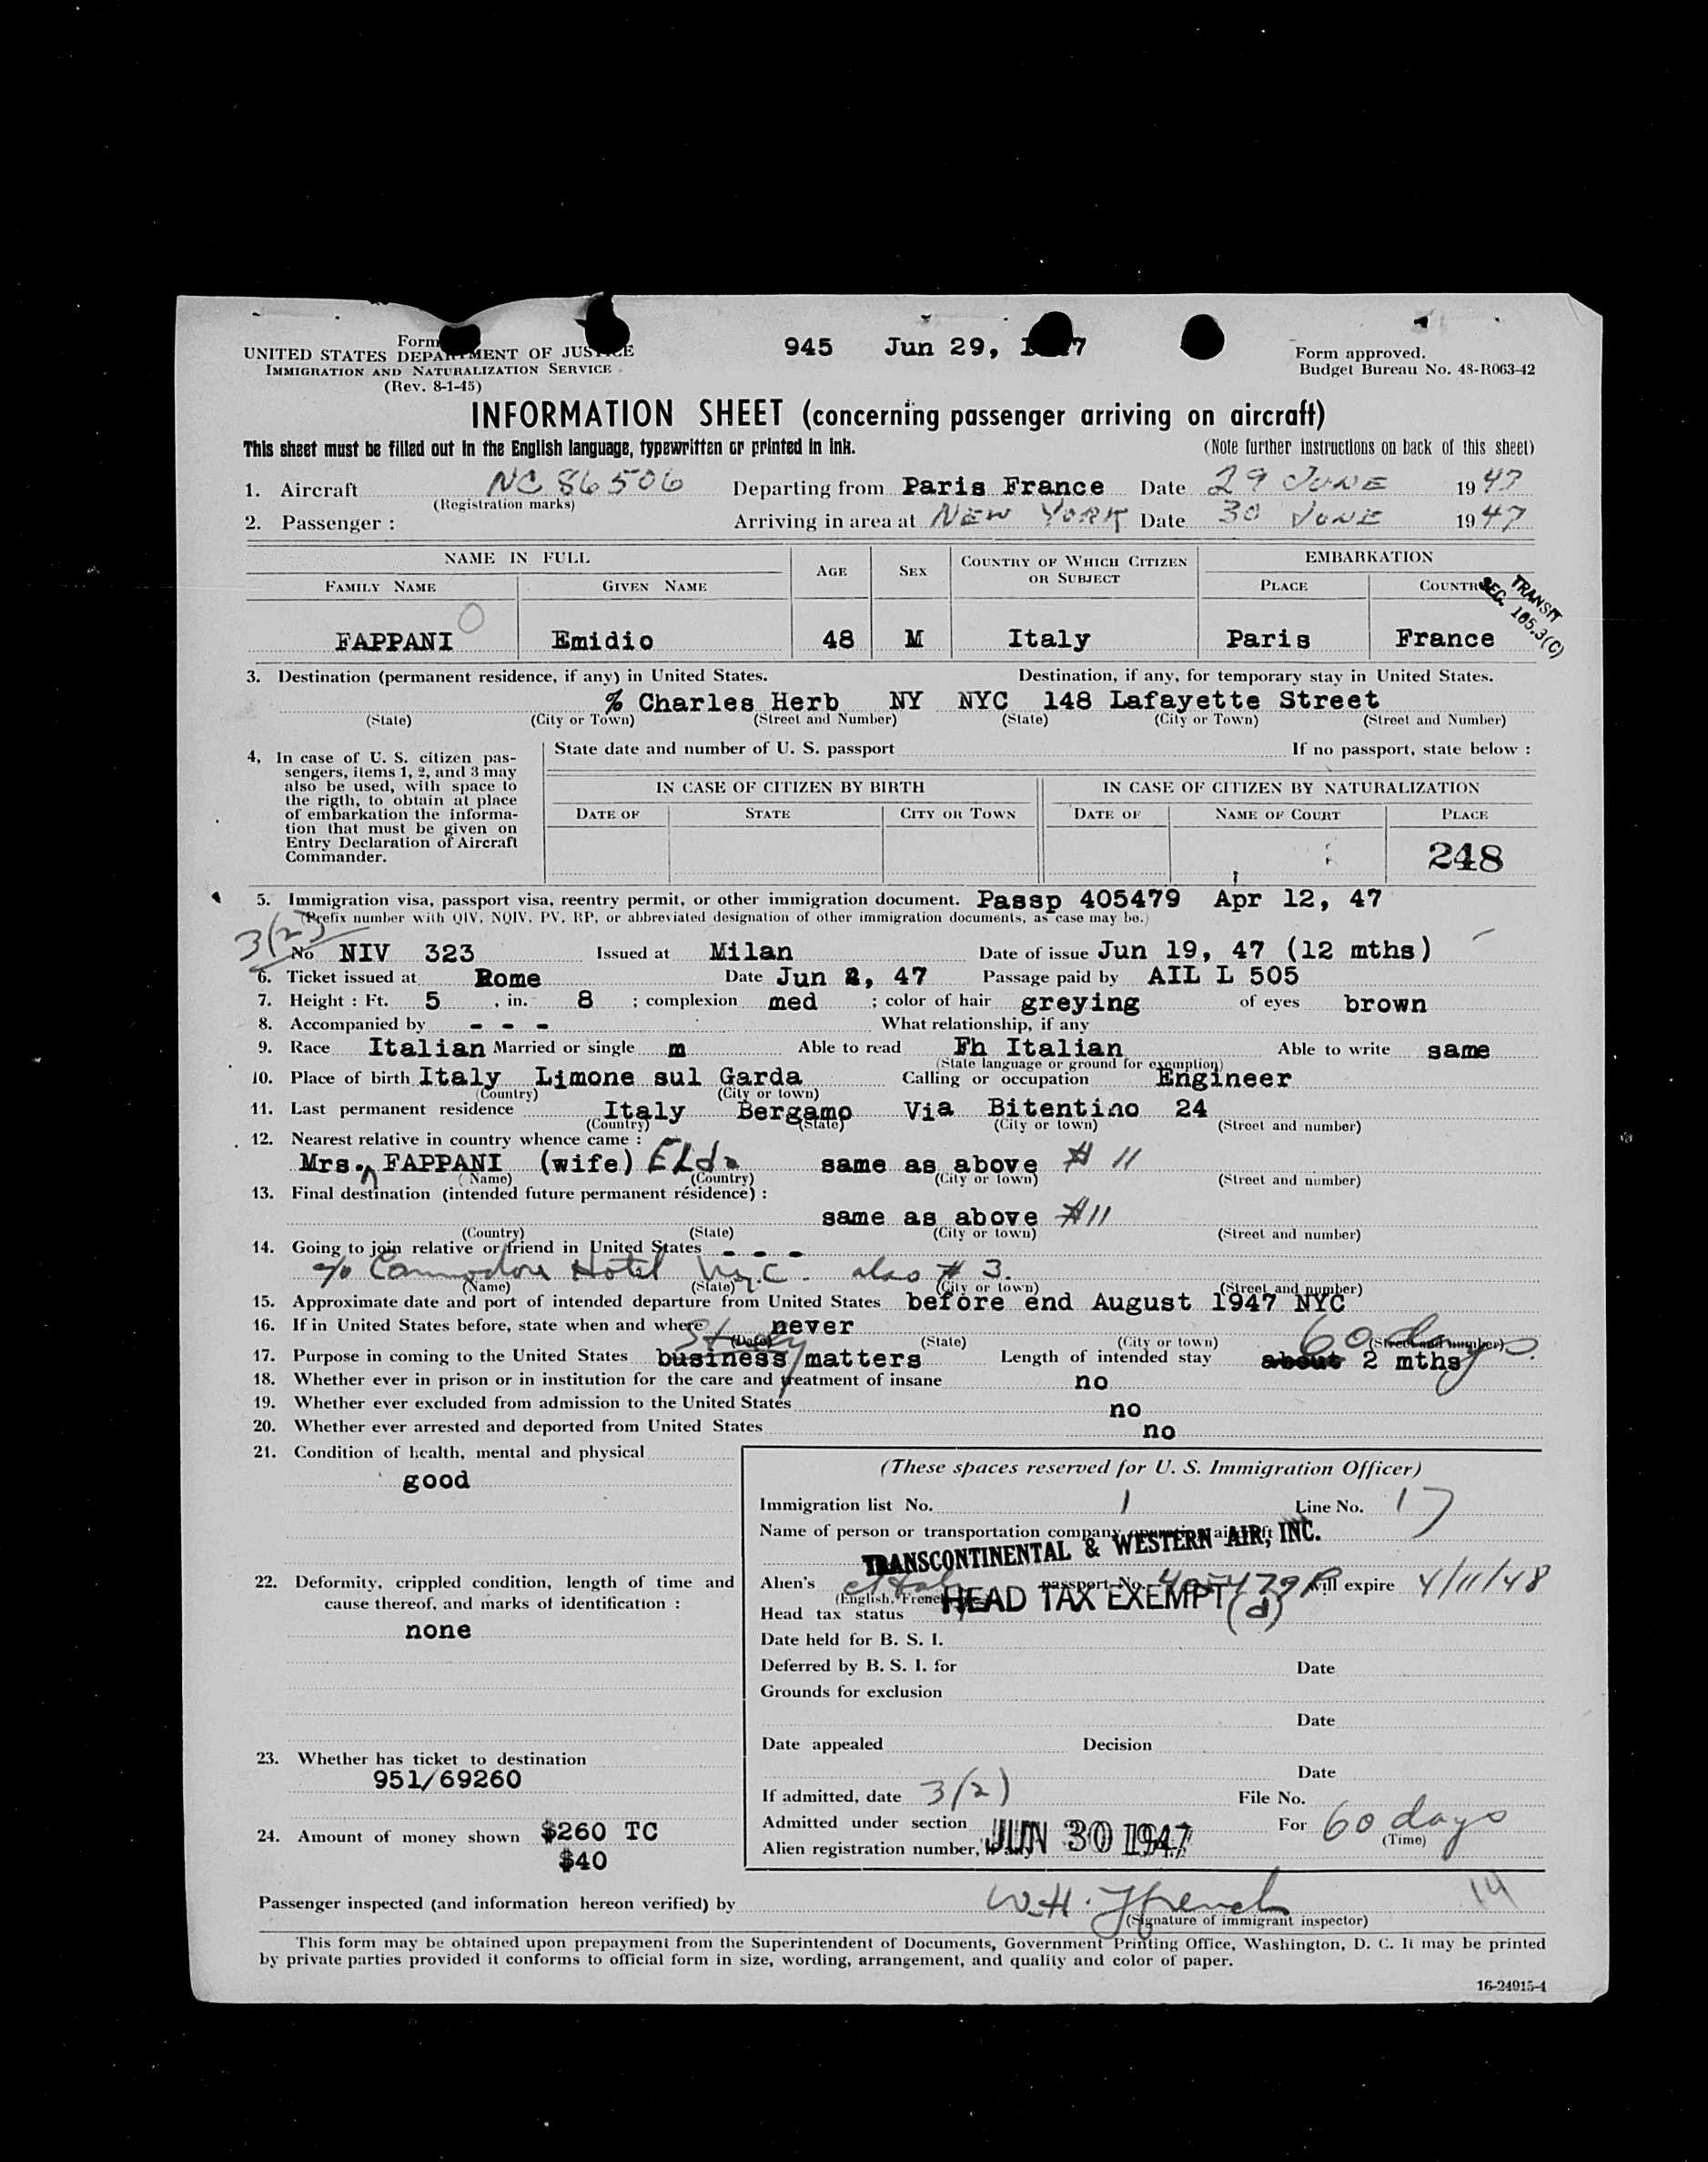 Form
945 Jun 29, 1947
UNITED STATES DEPARTMENT OF JUSTICE
IMMIGRATION AND NATURALIZATION SERVICE
(Rev. 8-1-45)
Form approved.
Budget Bureau No. 43-R063-42
INFORMATION SHEET (concerning passenger arriving on aircraft)
This sheet must be filled out in the English language, typewritten or printed in ink.
(Note further instructions on back of this sheet)
1. Aircraft NC 86506 Departing from Paris France Date 29 JUNE 1947
(Registration marks)
2. Passenger : Arriving in area at NEW YORK Date 30 JUNE 1947
NAME IN FULL AGE SEX COUNTRY OF WHICH CITIZEN OR SUBJECT EMBARKATION
FAMILY NAME GIVEN NAME PLACE COUNTRY
TRANSIT
SEC. 165.3(C)
FAPPANI Emidio 48 M Italy Paris France
3. Destination (permanent residence, if any) in United States. Destination, if any, for temporary stay in United States.
% Charles Herb NY NYC 148 Lafayette Street
(State) (City or Town) (Street and Number) (State) (City or Town) (Street and Number)
4. In case of U. S. citizen pas-
sengers, items 1, 2, and 3 may
also be used, with space to
the rigth, to obtain at place
of embarkation the informa-
tion that must be given on
Entry Declaration of Aircraft
Commander.
State date and number of U. S. passport If no passport, state below :
IN CASE OF CITIZEN BY BIRTH IN CASE OF CITIZEN BY NATURALIZATION
DATE OF STATE CITY OR TOWN DATE OF NAME OF COURT PLACE
248
5. Immigration visa, passport visa, reentry permit, or other immigration document. Passp 405479 Apr 12, 47
(Prefix number with QIV, NQIV, PV, RP, or abbreviated designation of other immigration documents, as case may be.)
3(2)
No NIV 323 Issued at Milan Date of issue Jun 19, 47 (12 mths)
6. Ticket issued at Rome Date Jun 2, 47 Passage paid by AIL L 505
7. Height : Ft. 5 , in. 8 ; complexion med ; color of hair greying of eyes brown
8. Accompanied by - - - What relationship, if any
9. Race Italian Married or single m Able to read Fh Italian Able to write same
(State language or ground for exemption)
10. Place of birth Italy Limone sul Garda Calling or occupation Engineer
(Country) (City or town)
11. Last permanent residence Italy Bergamo Via Bitentino 24
(Country) (State) (City or town) (Street and number)
12. Nearest relative in country whence came :
Mrs. FAPPANI (wife) Elda same as above # 11
(Name) (Country) (City or town) (Street and number)
13. Final destination (intended future permanent résidence) :
same as above #11
(Country) (State) (City or town) (Street and number)
14. Going to join relative or friend in United States - - -
c/o Commodore Hotel N.Y.C. also # 3.
(Name) (State) (City or town) (Street and number)
15. Approximate date and port of intended departure from United States before end August 1947 NYC
16. If in United States before, state when and where never
(Date) (State) (City or town) (Street and number)
Study 60 days.
17. Purpose in coming to the United States business matters Length of intended stay about 2 mths
18. Whether ever in prison or in institution for the care and treatment of insane no
19. Whether ever excluded from admission to the United States no
20. Whether ever arrested and deported from United States no
21. Condition of health, mental and physical
good
22. Deformity, crippled condition, length of time and
cause thereof, and marks of identification :
none
23. Whether has ticket to destination
951/69260
24. Amount of money shown $260 TC
$40
(These spaces reserved for U. S. Immigration Officer)
Immigration list No. 1 Line No. 17
Name of person or transportation company operating aircraft
TRANSCONTINENTAL & WESTERN AIR, INC.
Alien's Ital passport No. 405479P will expire 4/11/48
(English, French,
Head tax status HEAD TAX EXEMPT (d)
Date held for B. S. I.
Deferred by B. S. I. for Date
Grounds for exclusion
Date
Date appealed Decision
Date
If admitted, date 3(2) File No.
Admitted under section For 60 days
(Time)
Alien registration number, JUN 30 1947
Passenger inspected (and information hereon verified) by W.H. Ffrench 14
(Signature of immigrant inspector)
This form may be obtained upon prepayment from the Superintendent of Documents, Government Printing Office, Washington, D. C. It may be printed
by private parties provided it conforms to official form in size, wording, arrangement, and quality and color of paper.
16-24915-4